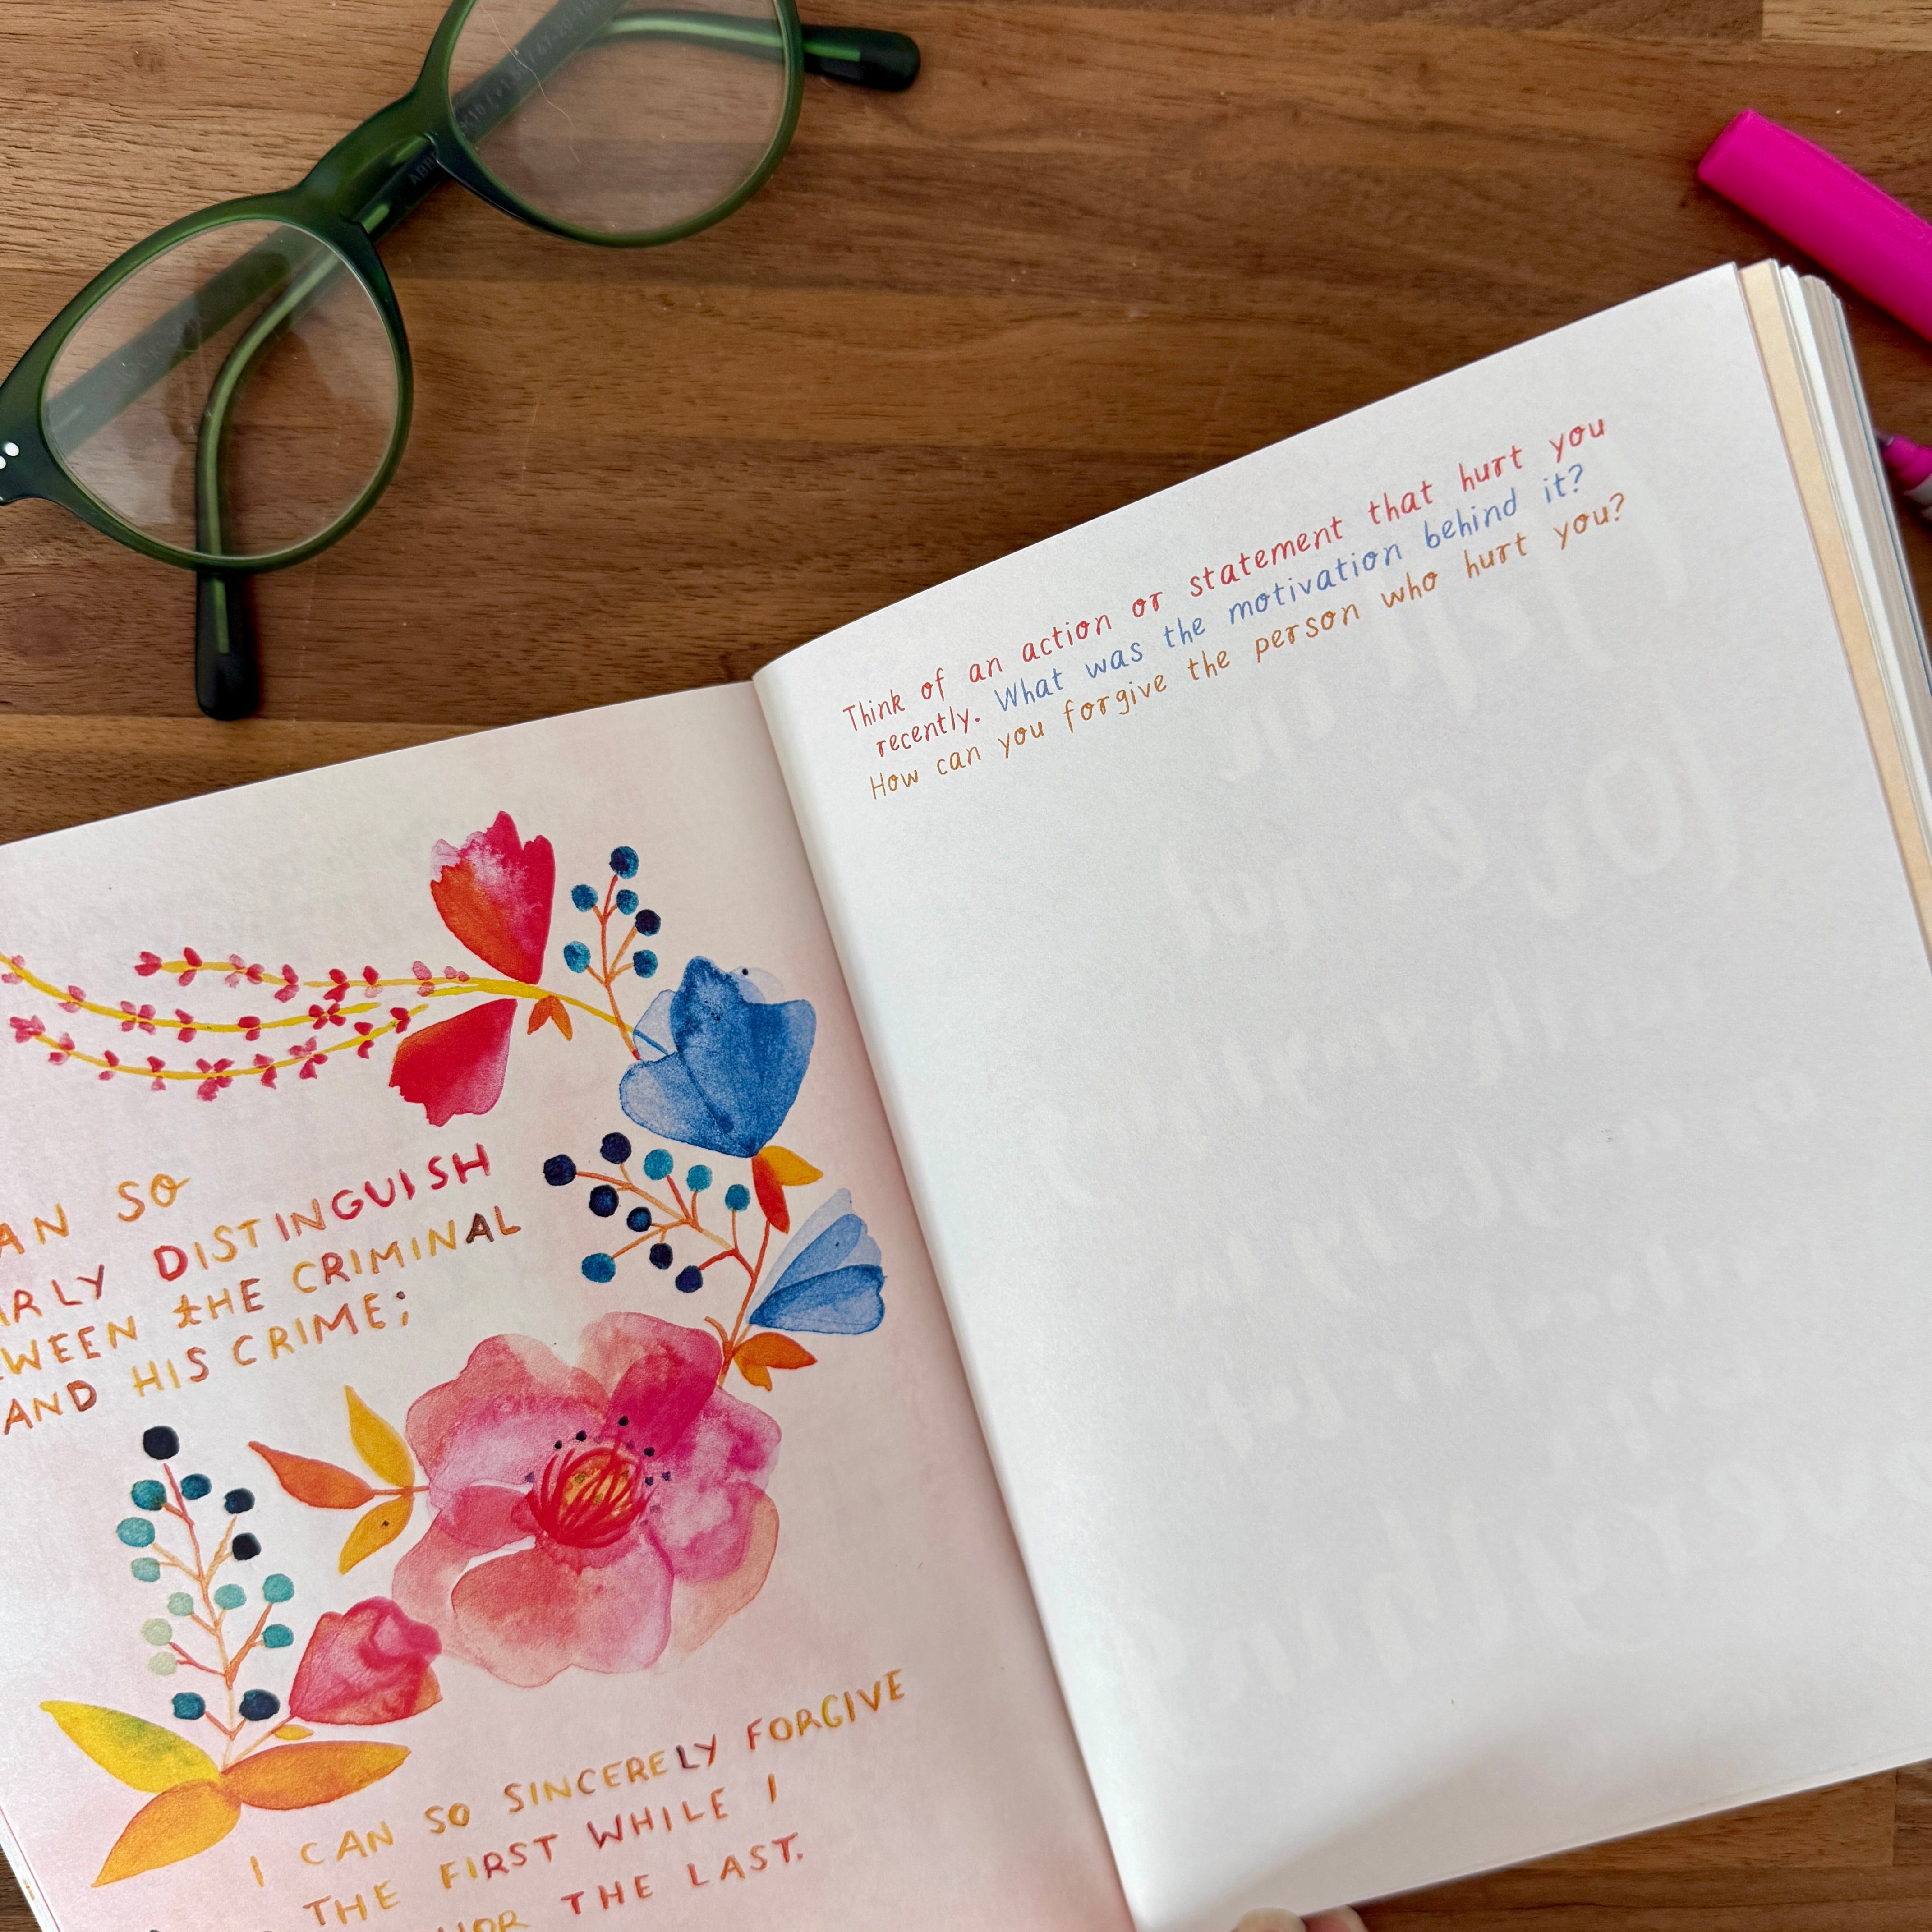 Think of an action or statement that hurt you
recently. What was the motivation behind it?
How can you forgive the person who hurt you?
SO
DISTINGUISH
THE CRIMINAL
AND HIS CRIME;
I CAN SO SINCERELY FORGIVE
THE FIRST WHILE I
THE LAST.